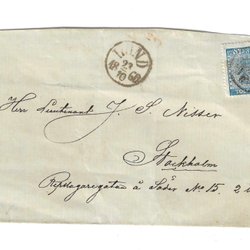 LUND
23
18 10 60
Herr Lieutenant J. S. Nisser
Stockholm
Repslagaregatan å Söder No 15. 2